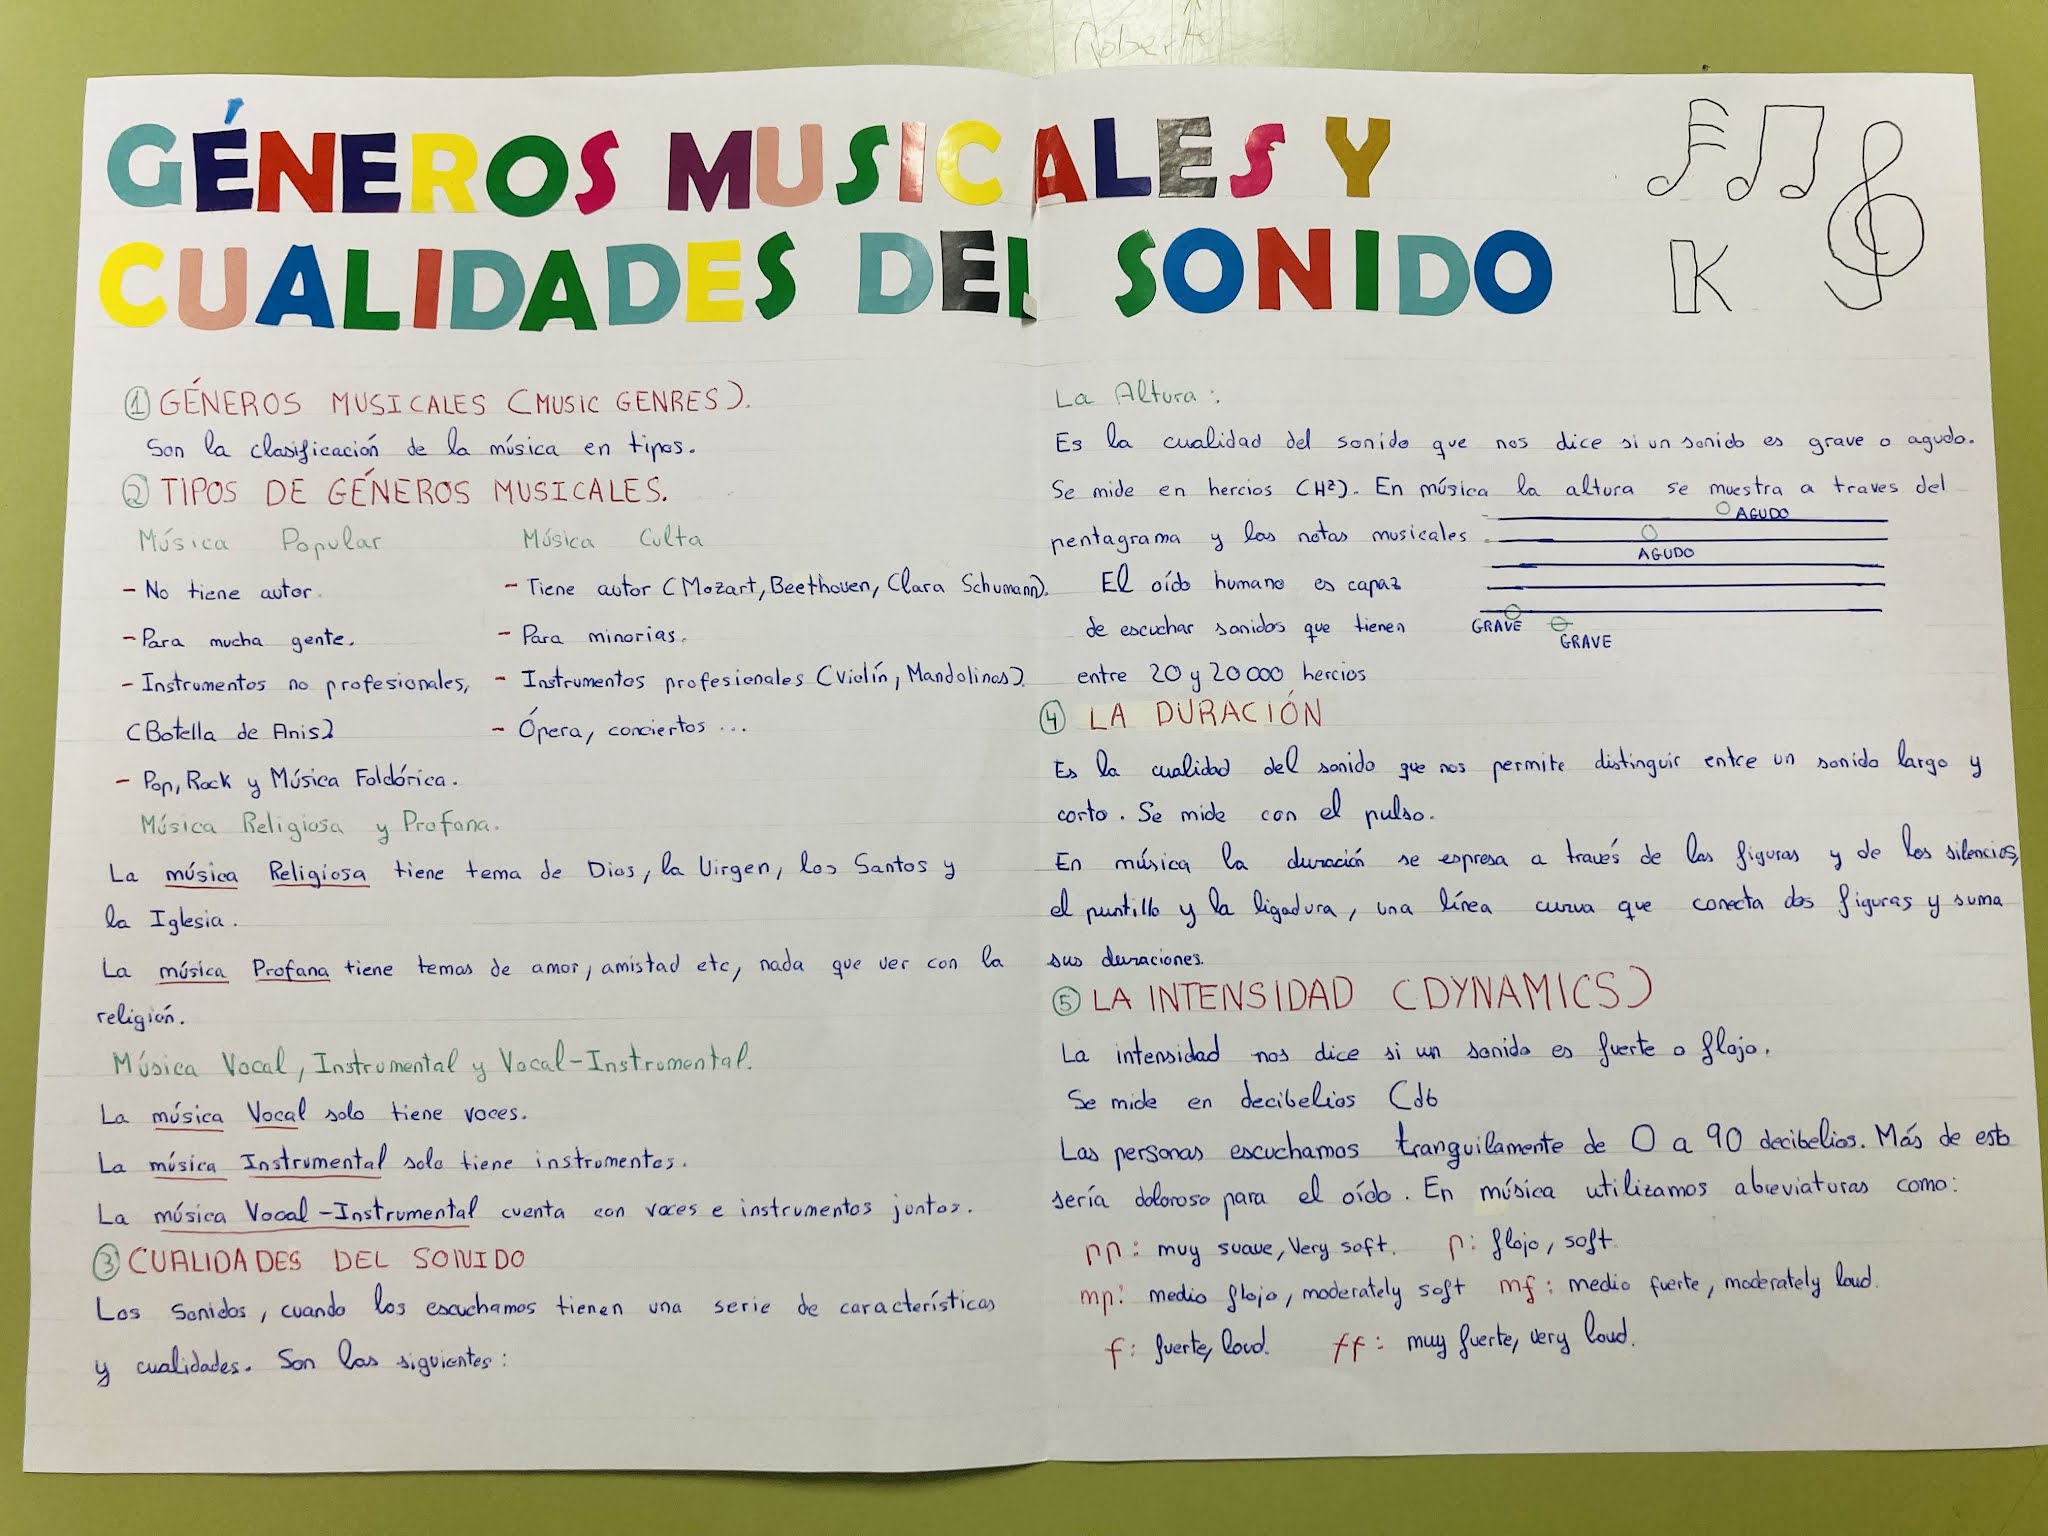 Roberto
GÉNEROS MUSICALES Y
CUALIDADES DEL SONIDO
① GÉNEROS MUSICALES (MUSIC GENRES).
Son la clasificación de la música en tipos.
② TIPOS DE GÉNEROS MUSICALES.
Música Popular
- No tiene autor.
- Para mucha gente.
- Instrumentos no profesionales,
(Botella de Anis)
- Pop, Rock y Música Foldórica.
Música Culta
- Tiene autor (Mozart, Beethoven, Clara Schumann).
- Para minorias.
- Instrumentos profesionales (Violín, Mandolinas)
- Ópera, conciertos ...
Música Religiosa y Profana.
La música Religiosa tiene tema de Dios, la Virgen, los Santos y
la Iglesia.
La música Profana tiene temas de amor, amistad etc, nada que ver con la
religión.
Música Vocal, Instrumental y Vocal-Instrumental.
La música Vocal solo tiene voces.
La música Instrumental solo tiene instrumentos.
La música Vocal-Instrumental cuenta con voces e instrumentos juntos.
③ CUALIDADES DEL SONIDO
Los Sonidos, cuando los escuchamos tienen una serie de características
y cualidades. Son las siguientes:
La Altura:
Es la cualidad del sonido que nos dice si un sonido es grave o agudo.
Se mide en hercios (Hz). En música la altura se muestra a traves del
pentagrama y las notas musicales
AGUDO
AGUDO
GRAVE
GRAVE
El oído humano es capaz
de escuchar sonidos que tienen
entre 20 y 20000 hercios
④ LA DURACIÓN
Es la cualidad del sonido que nos permite distinguir entre un sonido largo y
corto. Se mide con el pulso.
En música la duración se espresa a través de las figuras y de los silencios,
el puntillo y la ligadura, una línea curva que conecta dos figuras y suma
sus duraciones.
⑤ LA INTENSIDAD (DYNAMICS)
La intensidad nos dice si un sonido es fuerte o flojo.
Se mide en decibelios (db
Las personas escuchamos tranquilamente de 0 a 90 decibelios. Más de esto
sería doloroso para el oído. En música utilizamos abreviaturas como:
pp: muy suave, Very soft. p: flojo, soft.
mp: medio flojo, moderately soft mf: medio fuerte, moderately loud.
f: fuerte, loud. ff: muy fuerte, very loud.